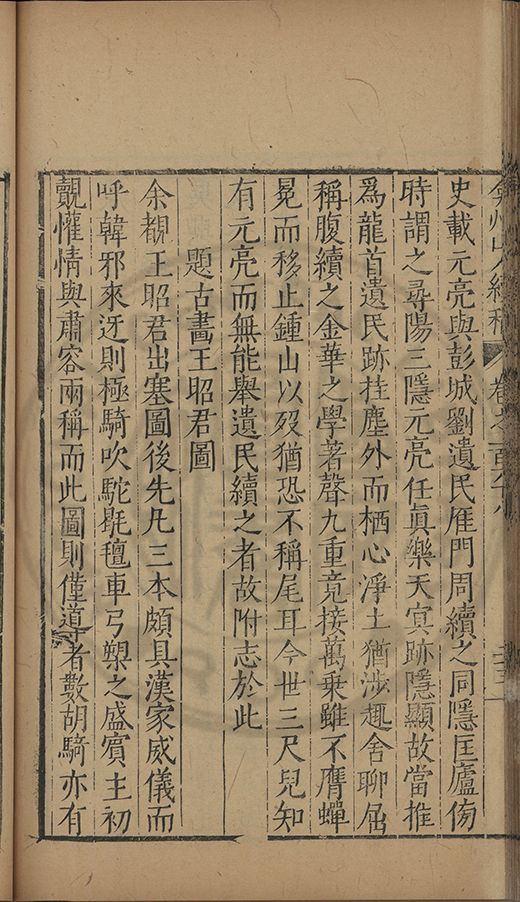 弇州山人續稿 卷之一百六十八
史載元亮與彭城劉遺民雁門周續之同隱匡廬傍
時謂之尋陽三隱元亮任眞樂天寅跡隱顯故當推
爲龍首遺民跡拄塵外而栖心淨土猶涉趣舍聊屈
稱腹續之金華之學著聲九重竟接萬乘雖不膺蟬
冕而移止鍾山以歿猶恐不稱尾耳今世三尺兒知
有元亮而無能舉遺民續之者故附志於此
題古畫王昭君圖
余覩王昭君出塞圖後先凡三本頗具漢家威儀而
呼韓邪來迓則極騎吹駝毾氊車弓槊之盛賓主初
覿懽情與肅容兩稱而此圖則僅導者數胡騎亦有